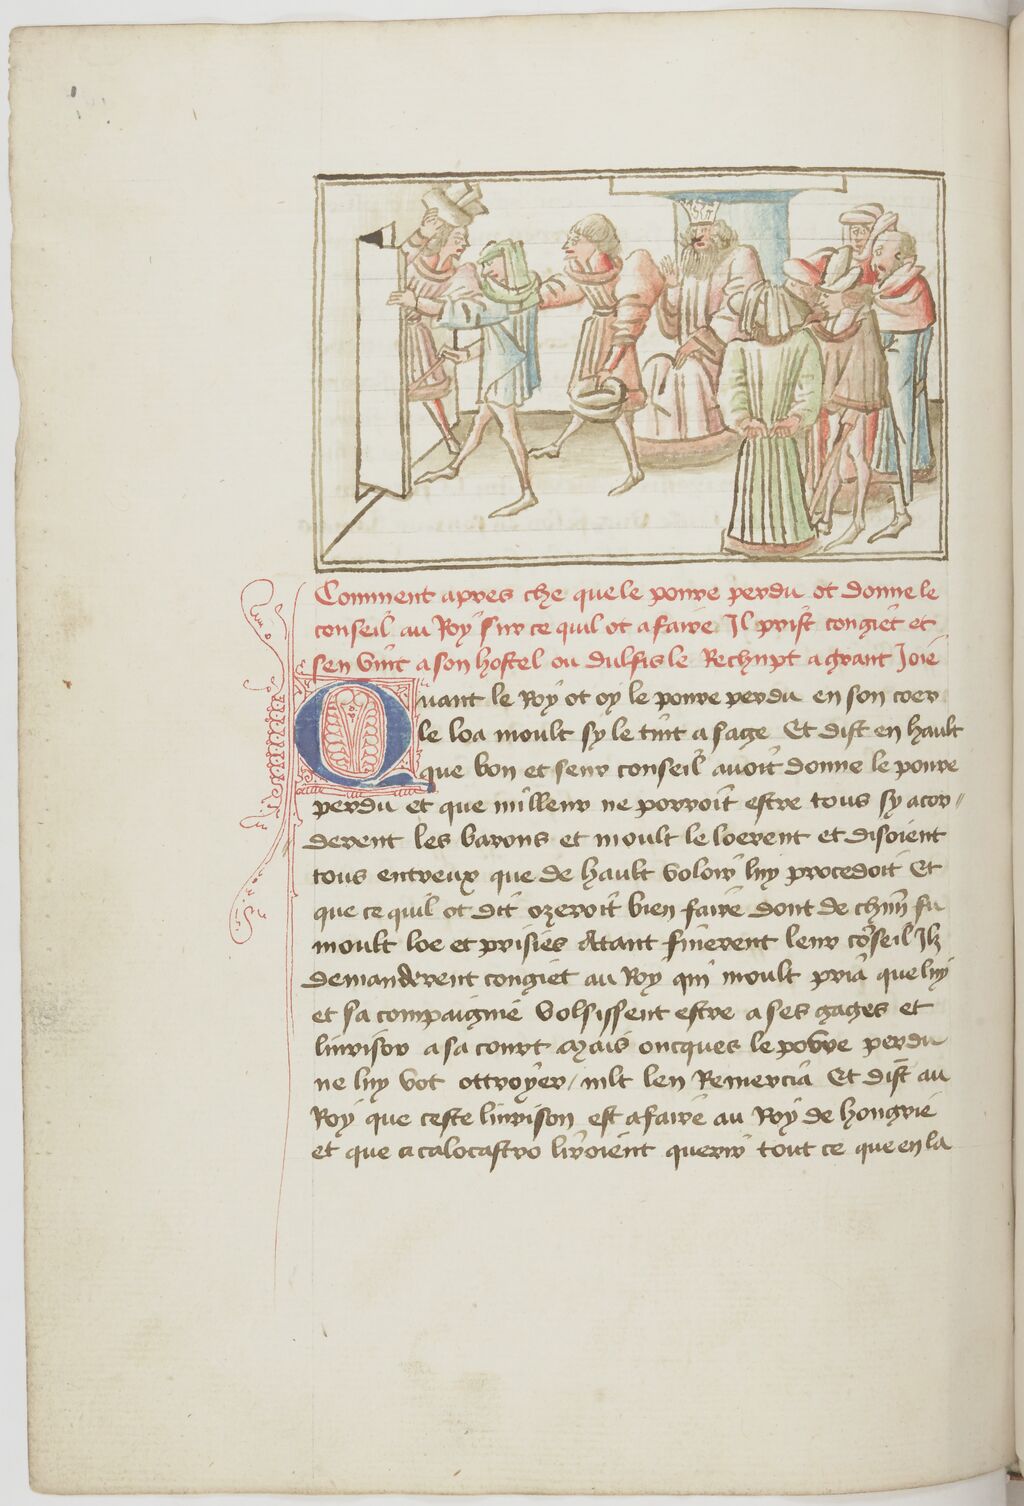 Comment apres che que le povre perdu ot donne le
conseil au Roy sur ce quil ot a faire Il prist congiet et
sen vint a son hostel ou dulfis le Rechupt a grant Joie
Quant le Roy ot oy le povre perdu en son coer
le loa moult sy le tint a sage Et dist en hault
que bon et seur conseil avoit donne le povre
perdu et que milleur ne porroit estre tous sy acor〃
derent les barons et moult le loerent et disoient
tous entreux que de hault voloir luy procedoit Et
que ce quil ot dit ozeroit bien faire dont de chun̄ fu
moult loe et prisies Atant finerent leur cōseil Ilz
demanderent congiet au Roy qui moult pria que luy
et sa compaignie volsissent estre a ses gages et
livrison a sa court Mais oncques le povre perdu
ne luy vot ottroyer / mlt len Remercia Et dist au
Roy que ceste livrison est a faire au Roy de hongrie
et que a calocastro liroient querir tout ce que en la